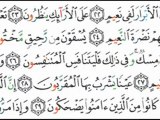 ٱلْأَبْرَارَ لَفِى نَعِيمٍ ﴿٢٢﴾ عَلَى ٱلْأَرَآئِكِ يَنظُرُونَ ﴿٢٣﴾
نَضْرَةَ ٱلنَّعِيمِ ﴿٢٤﴾ يُسْقَوْنَ مِن رَّحِيقٍ مَّخْتُومٍ
مِسْكٌ وَفِى ذَٰلِكَ فَلْيَتَنَافَسِ ٱلْمُتَنَٰفِسُونَ
عَيْنًا يَشْرَبُ بِهَا ٱلْمُقَرَّبُونَ ﴿٢٨﴾ إِنَّ
كَانُوا۟ مِنَ ٱلَّذِينَ ءَامَنُوا۟ يَضْحَكُونَ ﴿٢٩﴾ وَإِذَا مَرُّوا۟